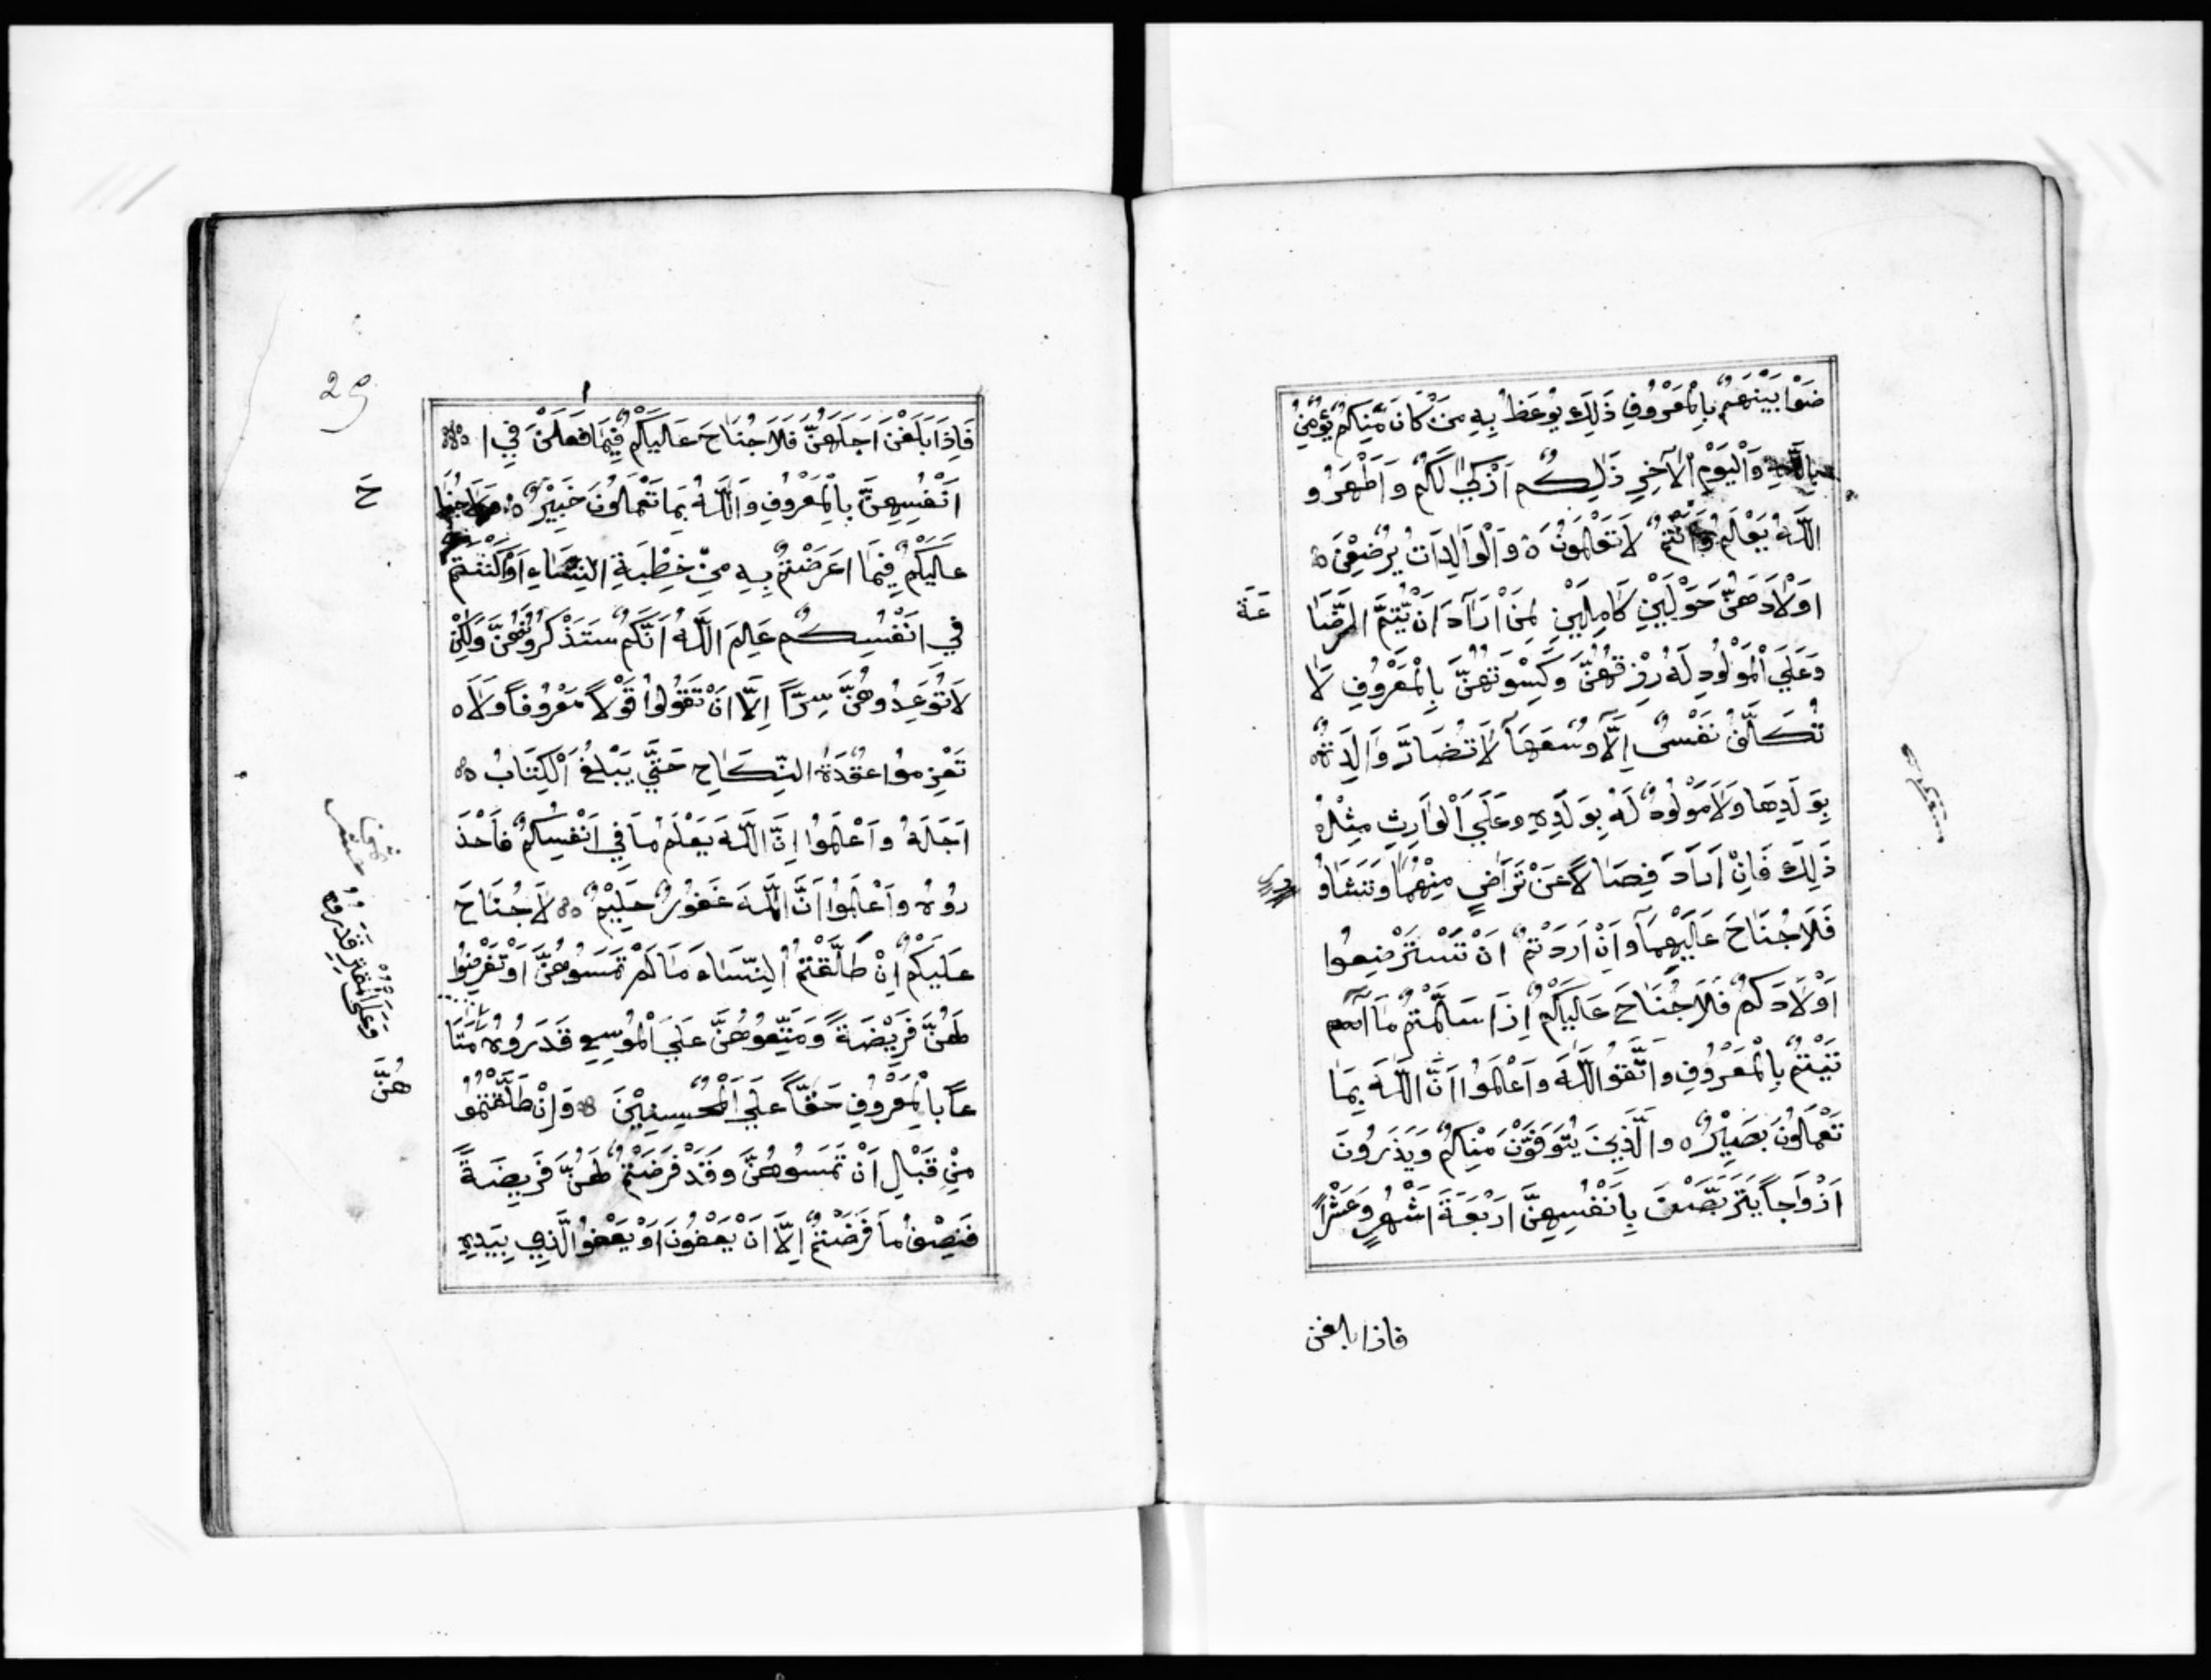 ضَوْا بَيْنَهُمْ بِالْمَعْرُوفِ ذَلِكَ يُوعَظُ بِهِ مَنْ كَانَ مِنْكُمْ يُؤْمِنُ
بِاللَّهِ وَالْيَوْمِ الْآخِرِ ذَلِكُمْ اَزْكَى لَكُمْ وَاَطْهَرُ و
اللَّهُ يَعْلَمُ وَاَنْتُمْ لَا تَعْلَمُونَ ه وَالْوَالِدَاتُ يُرْضِعْنَ ه
اَوْلَادَهُنَّ حَوْلَيْنِ كَامِلَيْنِ لِمَنْ اَرَادَ اَنْ يُتِمَّ الرَّضَا
عَةَ
وَعَلَي الْمَوْلُودِ لَهُ رِزْقُهُنَّ وَكِسْوَتُهُنَّ بِالْمَعْرُوفِ لَا
تُكَلَّفُ نَفْسٌ اِلَّا وُسْعَهَا لَا تُضَارَّ وَالِدَةٌ ه
بِوَلَدِهَا وَلَا مَوْلُودٌ لَهُ بِوَلَدِهِ وعَلَي الْوَارِثِ مِثْلُ
ذَلِكَ فَاِنْ اَرَادَ فِصَالًا عَنْ تَرَاضٍ مِنْهُمَا وَتَشَاوُ
فَلَا جُنَاحَ عَلَيْهِمَا وَاِنْ اَرَدْتُمْ اَنْ تَسْتَرْضِعُوا
اَوْلَادَكُمْ فَلَا جُنَاحَ عَلَيْكُمْ اِذَا سَلَّمْتُمْ مَا
تَيْتُمْ بِالْمَعْرُوفِ وَاتَّقُوا اللَّهَ وَاعْلَمُوا اَنَّ اللَّهَ بِمَا
تَعْمَلُونَ بَصِيرٌ ه والَّذِينَ يُتَوَفَّوْنَ مِنْكُمْ وَيَذَرُونَ
اَزْوَاجًا يَتَرَبَّصْنَ بِاَنْفُسِهِنَّ اَرْبَعَةَ اَشْهُرٍ وَعَشْرًا
فاذا بلغن
29
فَاِذَا بَلَغْنَ اَجَلَهُنَّ فَلَا جُنَاحَ عَلَيْكُمْ فِيمَا فَعَلْنَ فِي ا
اَنْفُسِهِنَّ بِالْمَعْرُوفِ وَاللَّهُ بِمَا تَعْمَلُونَ خَبِيرٌ ه وَلَا جُنَا
حَ
عَلَيْكُمْ فِيمَا اعَرَضْتُمْ بِهِ مِنْ خِطْبَةِ النِّسَاءِ اَوْ اَكْنَنْتُمْ
فِي اَنْفُسِكُمْ عَلِمَ اللَّهُ اَنَّكُمْ سَتَذْكُرُونَهُنَّ وَلَكِنْ
لَا تُوَعِدُوهُنَّ سِرًّا اِلَّا اَنْ تَقُولُوا قَوْلًا مَعْرُوفًا وَلَا ه
تَعْزِموُا عُقْدَةَ النِّكَاحِ حَتَّي يَبْلُغَ الْكِتَابُ ه
اَجَلَهُ وَاعْلَمُوا اِنَّ اللَّهَ يَعْلَمُ مَا فِي اَنْفُسِكُمْ فَاحْذَ
رُوهُ وَاعْلَمُوا اَنَّ اللَّهَ غَفُورٌ حَلِيمٌ ه لَا جُنَاحَ
عَلَيْكُمْ اِنْ طَلَّقْتُمُ النِّسَاءَ مَا لَمْ تَمَسُوهُنَّ اَوْ تَفْرِضُوا
لَهُنَّ فَرِيضَةً وَمَتِّعُوهُنَّ عَلَي الْمُوسِعِ قَدَرُوهُ مَتَا
وَعَلَى الْمُقْتِرِ قَدَرُوهُ
عًا بِالْمَعْرُوفِ حَقًّا عَلَي الْمُحْسِنِيْنَ ه وَاِنْ طَلَّقْتُمُو
هُنَّ
مِنْ قَبْلِ اَنْ تَمَسُوهُنَّ وَقَدْ فَرَضْتُمْ لَهُنَّ فَرِيضَةً
فَنِصْفُ مَا فَرَضْتُمْ اِلَّا اَنْ يَعْفُونَ اَوْ يَعْفُوا الَّذِي بِيَدِهِ